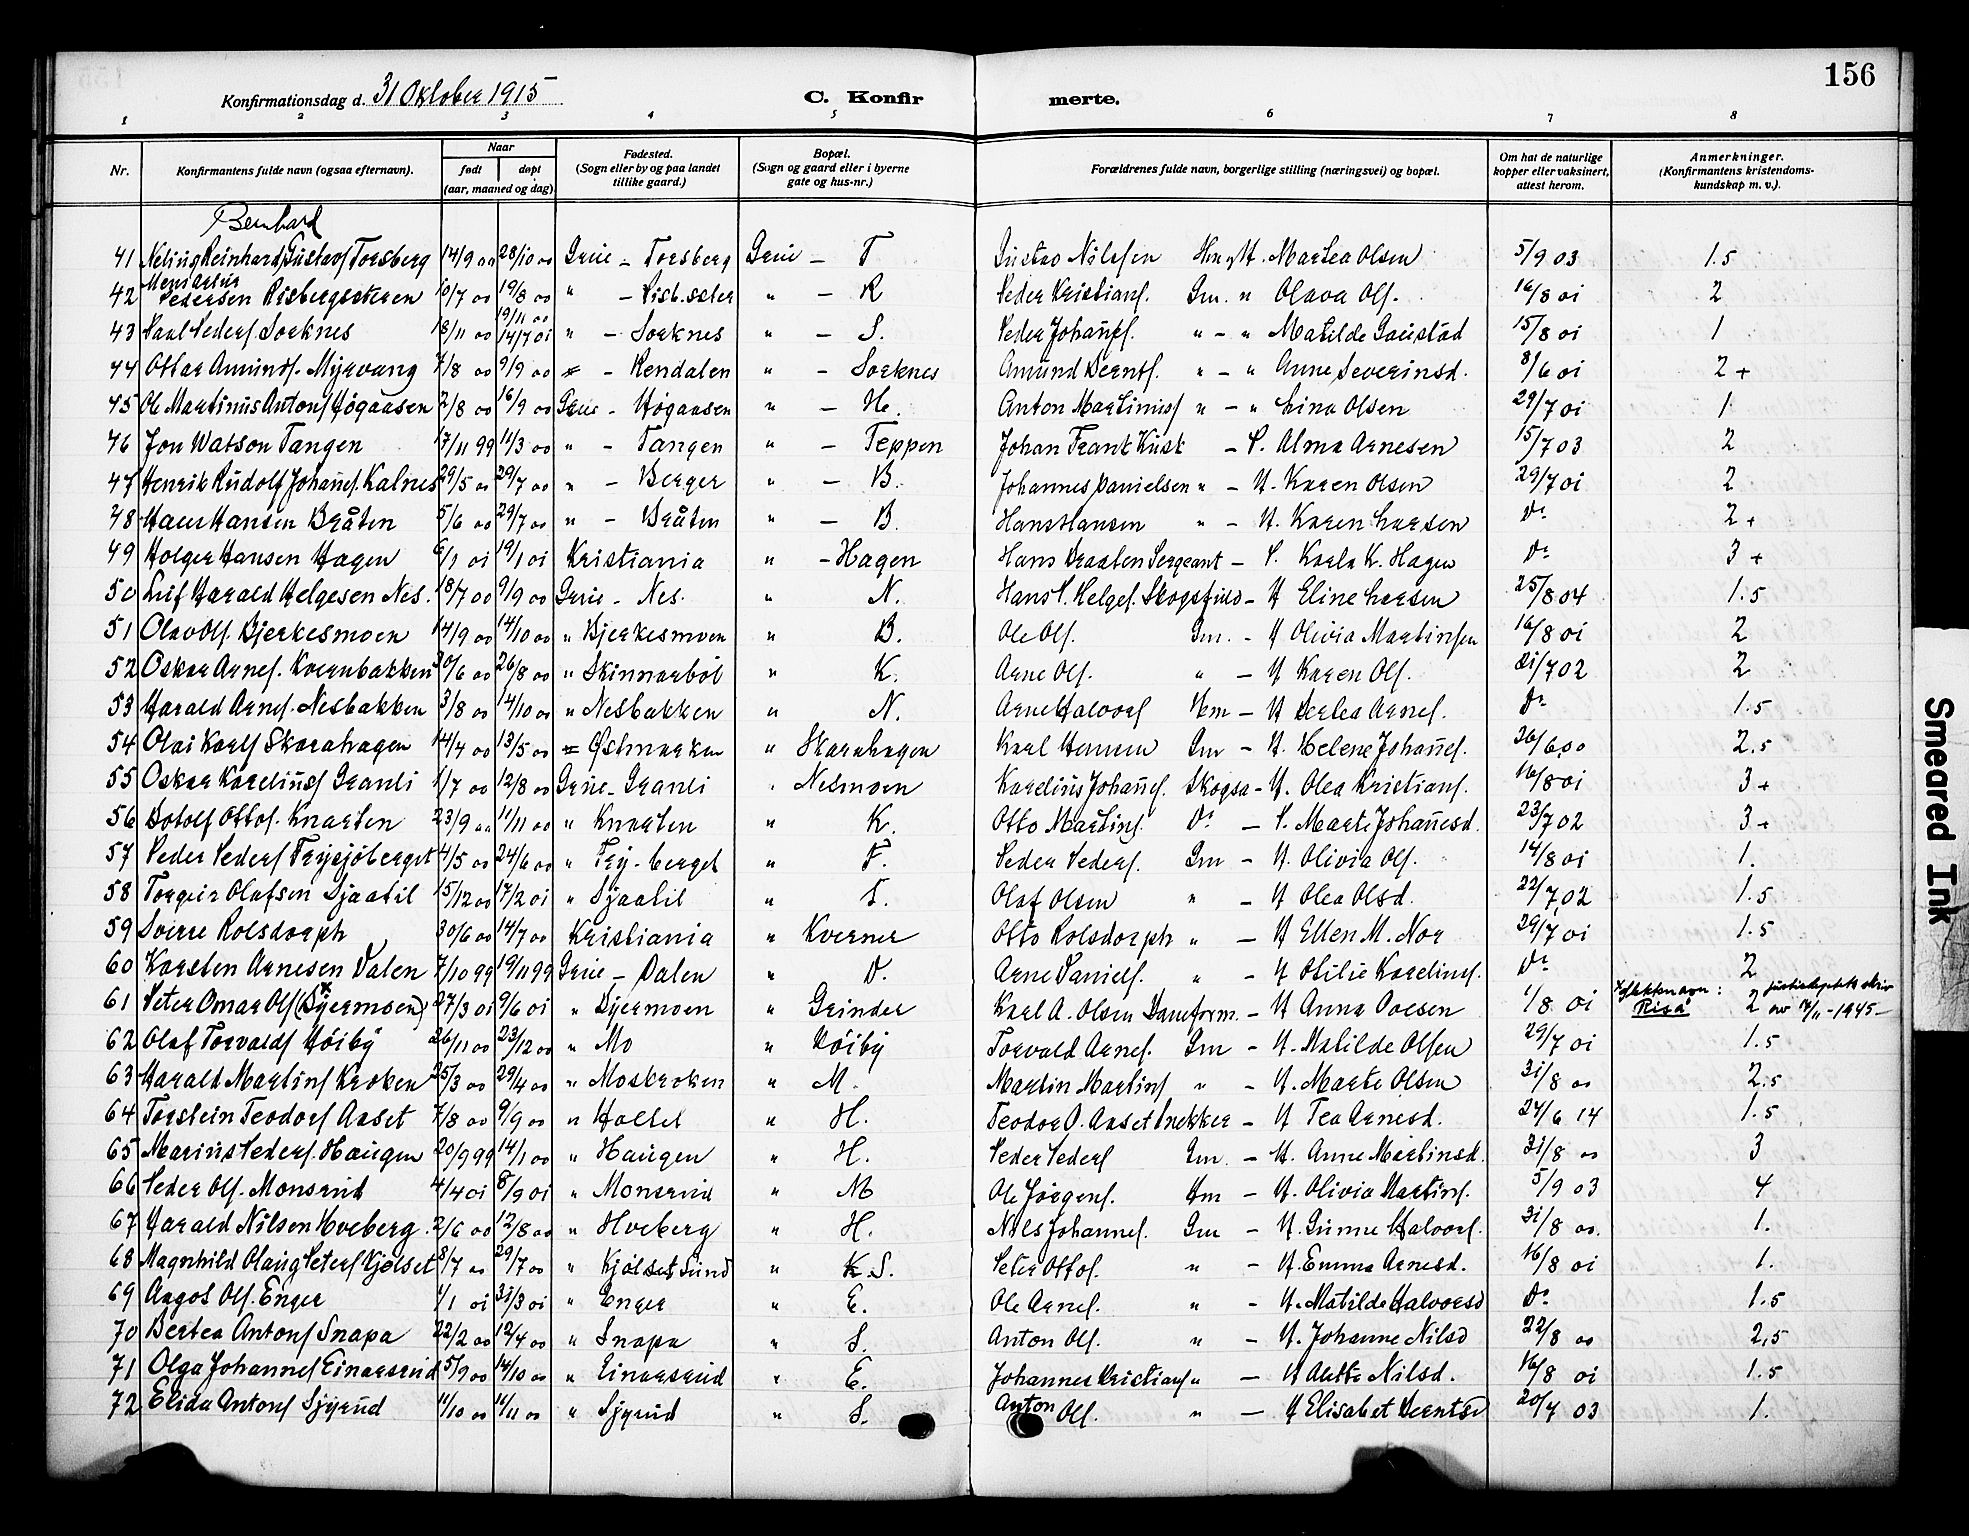 156
Konfirmationsdag d. 31 Oktober 1915
C. Konfir merte.
1 2 3 4 5 6 7 8
Nr. Konfirmantens fulde navn (ogsaa efternavn). Naar født døpt (aar, maaned og dag) Fødested. (Sogn eller by og paa landet tillike gaard.) Bopæl. (Sogn og gaard eller i byerne gate og hus-nr.) Forældrenes fulde navn, borgerlige stilling (næringsvei) og bopæl. Om hat de naturlige kopper eller vaksinert, attest herom. Anmerkninger. (Konfirmantens kristendoms-kundskap m. v.).
Bernhard
41 Reinhard Gustavs Torsberg 14/9 00 28/10 00 Grue - Torsberg Grue - T Gustav Nilssen Martea Olsen 5/9 03 1.5
42 Pedersen Risbergseteren 10/7 00 19/8 00 " - Risb.seter " - R Peder Kristians. Gm. " Olava Ols. 16/8 01 2
19/11 00
43 Paul Peders Sorknes 18/11 00 14/7 01 " - Sorknes " - S. Peder Johans. " - " Matilde Gaustad 15/8 01 1
44 Ottar Amunds. Myrvang 7/8 00 9/9 00 - Rendalen " - Sorknes Amund Bernts. " - " Anne Severinsd. 8/6 01 2+
45 Ole Martinus Antons Høgaasen 2/8 00 16/9 00 Grue - Høgaasen " - H. Anton Martinus " - " Lina Olsen 29/7 01 1
46 Jon Watson Tangen 17/11 99 11/3 00 " - Tangen " - Teppen Johan Frank Kust - P. Alma Arnesen 15/7 03 2
47 Henrik Rudolf Johans. Kalnes 29/5 00 29/7 00 " - Berger " - B. Johannes Danielsen " - H. Karen Olsen 29/7 01 2
48 Hans Hansen Bråten 5/6 00 29/7 00 " - Bråten " - B. Hans Hansen " - H. Karen Larsen Do 2+
49 Holger Hansen Hagen 6/1 01 19/1 01 Kristiania " - Hagen Hans Braaten Sergeant - P. Karla K. Hagen Do 3+
50 Leif Harald Helgesen Nes. 18/7 00 9/9 00 Grue - Nes. " N. Hans P. Helges. - H Eline Larsen 25/8 04 1.5
51 Olav Ols. Bjerkesmoen 14/9 00 14/10 00 " Bjerkesmoen " B. Ole Ols. Gm. - H Olivia Martinsen 16/8 01 2
52 Oskar Arnes. Kvernbakken 30/6 00 26/8 00 " Skinnarbøl " K. Arne Ols. " - H Karen Ols. 21/7 02 2
53 Harald Arnes. Nesbakken 3/8 00 14/10 00 " Nesbakken " N. Arne Halvors Hm - H Bertea Arnes. Do 1.5
54 Olai Karls Skarahagen 14/4 00 13/5 00 Østmarken " Skarahagen Karl Hansen Gm - H. Helene Johans. 26/6 00 2.5
55 Oskar Karelius Granli 1/7 00 12/8 00 Grue - Granli " Nesmoen Karelius Johans. Skogsa - H. Olea Kristians. 16/8 01 3+
56 Botolf Ottos. Knarten 23/9 00 11/11 00 " Knarten " K. Otto Martins. Do - P. Marte Johannesd. 23/7 02 3+
57 Peder Peders Frysjøberget 4/5 00 24/6 00 " Fry-berget " F. Peder Peders. Gm - H. Olivia Ols. 14/8 01 1.
58 Torgeir Olafsen Sjaatil 15/12 00 17/2 01 " Sjaatil " S. Olaf Olsen " - H Olea Olsd. 22/7 02 1.5
59 Sverre Rolsdorph 30/6 00 14/7 00 Kristiania " Kverner Otto Rolsdorph " - H Ellen M. Nor 29/7 01 1.5
60 Karsten Arnesen Dalen 7/10 99 19/11 99 Grue - Dalen " D. Arne Daniels. " - H Otilie Karelius. Do 2
61 Peter Omar Ols (Djermoen) 27/3 01 9/6 01 " Djermoen " Grinder Karl A. Olsen - H Anna Ovesen 1/8 01 Slektsnavn: Riså 2 justisdeptets skriv av 7/11-1945-
62 Olaf Torvalds Høiby 26/11 00 23/12 00 " Mo " Høiby Torvald Arnes. Gm - H. Matilde Olsen 29/7 01 1.5
63 Harald Martins Kroken 25/3 00 29/4 00 " Moskroken " M. Martin Martins " - H. Marte Olsen 31/8 00 2.5
64 Torstein Teodors Aaset 7/8 00 9/9 00 " Holtet " H. Teodor O. Aaset Snekker - H Tea Arnesd. 24/6 14 1.5
65 Marius Peders. Haugen 20/9 99 14/1 00 " Haugen " H. Peder Peders Gm. - H. Anne Martinsd. 31/8 00 3
66 Peder Ols. Monsrud 4/4 01 8/9 01 " Monsrud " M Ole Jørgens. Hm - H. Olivia Martins. 5/9 03 4
67 Harald Nilsen Hveberg. 2/6 00 12/8 00 " Hveberg " H. Nils Johannes. Gm - H. Gunne Halvors. 31/8 00. 1.
68 Magnhild Olaug Peters Kjølset 8/7 00 29/7 00 " Kjølset Sund " K S. Peter Ottos. " - H. Emma Arnesd. 16/8 01 1.
69 Aagot Ols. Enger 4/1 01 31/3 01 " Enger " E. Ole Arnes. " - H. Matilde Halvorsd Do 1.5
70 Bertea Antons Snapa 22/2 00 12/4 00 " Snapa " S. Anton Ols. " - H. Johanne Nilsd 22/8 00 2.5
71 Olga Johannes Einarsrud 15/9 00 14/10 00 " Einarsrud " E. Johannes Kristians " - H Nilsd. 16/8 01 1.5
72 Elida Antons Sjyrud 11/10 00 11/11 00 " Sjyrud " S. Anton Ols. " - H Elisabet Berntsd 20/7 03 1.
Smeared Ink